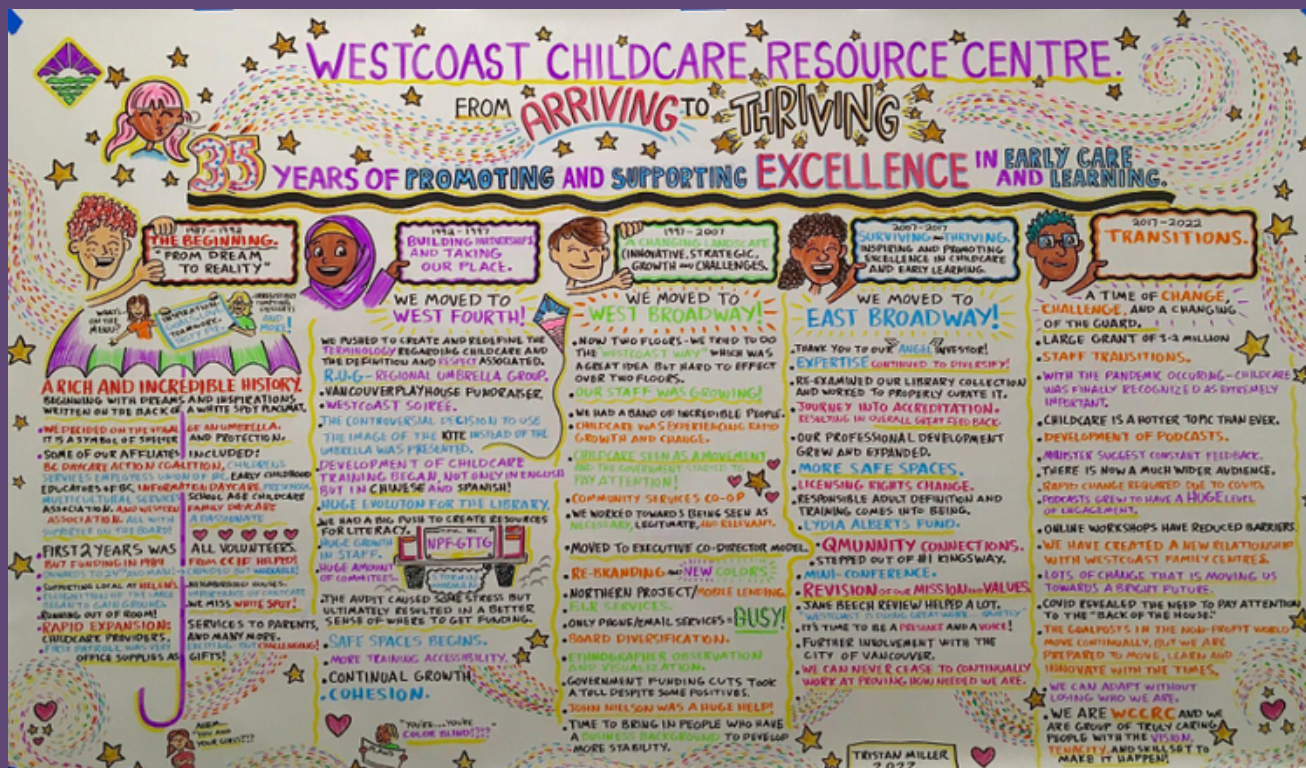 WESTCOAST CHILDCARE RESOURCE CENTRE.
FROM ARRIVING TO THRIVING
35 YEARS OF PROMOTING AND SUPPORTING EXCELLENCE IN EARLY CARE AND LEARNING.
1987-1992
THE BEGINNING.
"FROM DREAM
TO REALITY"
WHAT'S
ON THE
MENU?
AND
MORE!
A RICH AND INCREDIBLE HISTORY.
BEGINNING WITH DREAMS AND INSPIRATIONS
WRITTEN ON THE BACK OF A WHITE SPOT PLACEMAT.
•WE DECIDED ON THE VISUAL OF AN UMBRELLA.
IT IS A SYMBOL OF SHELTER AND PROTECTION.
•SOME OF OUR AFFILIATES INCLUDED:
BC DAYCARE ACTION COALITION, CHILDREN'S
SERVICES EMPLOYEES UNION OF BC, EARLY CHILDHOOD
EDUCATORS OF BC, INFORMATION DAYCARE, PRESCHOOL
MULTICULTURAL SERVICES SCHOOL AGE CHILDCARE
ASSOCIATION, AND WESTERN FAMILY DAYCARE
ASSOCIATION. ALL WITH A PASSIONATE
SUPPORTER ON THE BOARD!
•FIRST 2 YEARS WAS ALL VOLUNTEERS.
BUT FUNDING IN 1989 FROM CCIF HELPED!
•SUPPORTING LOCAL AT HELEN'S NEIGHBOURHOOD HOUSES.
BEGAN TO GAIN GROUND. WE MISS WHITE SPOT!
RUNNING OUT OF ROOM! SERVICES TO PARENTS,
•RAPID EXPANSION: AND MANY MORE.
CHILDCARE PROVIDERS, EXCITING BUT CHALLENGING!
FIRST PAYROLL WAS VERY
OFFICE SUPPLIES AS GIFTS!
AHEM...
YOU AND
YOUR GIRLS???
1992-1997
BUILDING PARTNERSHIPS
AND TAKING
OUR PLACE.
WE MOVED TO
WEST FOURTH!
WE PUSHED TO CREATE AND REDEFINE THE
TERMINOLOGY REGARDING CHILDCARE AND
THE DEFINITION AND RESPECT ASSOCIATED.
R.U.G - REGIONAL UMBRELLA GROUP.
•VANCOUVER PLAYHOUSE FUNDRAISER
•WESTCOAST SOIREE.
•THE CONTROVERSIAL DECISION TO USE
THE IMAGE OF THE KITE INSTEAD OF THE
UMBRELLA WAS PRESENTED.
•DEVELOPMENT OF CHILDCARE
TRAINING BEGAN, NOT ONLY IN ENGLISH
BUT IN CHINESE AND SPANISH!
•HUGE EVOLUTON FOR THE LIBRARY.
•WE HAD A BIG PUSH TO CREATE RESOURCES
FOR LITERACY.
•HUGE GROWTH
IN STAFF.
HUGE AMOUNT
OF COMMITTEES.
NPF-GTTG
•THE AUDIT CAUSED SOME STRESS BUT
ULTIMATELY RESULTED IN A BETTER
SENSE OF WHERE TO GET FUNDING.
•SAFE SPACES BEGINS.
•MORE TRAINING ACCESSIBILITY.
•CONTINUAL GROWTH
•COHESION.
"YOU'RE...YOU'RE
COLOR BLIND!???
1997-2007
A CHANGING LANDSCAPE
(INNOVATIVE, STRATEGIC,
GROWTH AND CHALLENGES.
WE MOVED TO
WEST BROADWAY!
•NOW TWO FLOORS - WE TRIED TO DO
THE "WESTCOAST WAY" WHICH WAS
A GREAT IDEA BUT HARD TO EFFECT
OVER TWO FLOORS.
•OUR STAFF WAS GROWING!
•WE HAD A BAND OF INCREDIBLE PEOPLE.
•CHILDCARE WAS EXPERIENCING RAPID
GROWTH AND CHANGE.
•CHILDCARE SEEN AS A MOVEMENT
AND THE GOVERNMENT STARTED TO
PAY ATTENTION!
•COMMUNITY SERVICES CO-OP
•WE WORKED TOWARDS BEING SEEN AS
NECESSARY, LEGITIMATE, AND RELEVANT.
•MOVED TO EXECUTIVE CO-DIRECTOR MODEL.
•RE-BRANDING AND NEW COLORS
•NORTHERN PROJECT/MOBILE LENDING.
SERVICES.
•ONLY PHONE/EMAIL SERVICES = BUSY!
•BOARD DIVERSIFICATION.
•ETHNOGRAPHER OBSERVATION
AND VISUALIZATION.
•GOVERNMENT FUNDING CUTS TOOK
A TOLL DESPITE SOME POSITIVES.
•JOHN NIELSON WAS A HUGE HELP!
•TIME TO BRING IN PEOPLE WHO HAVE
A BUSINESS BACKGROUND TO DEVELOP
MORE STABILITY.
2007-2017
SURVIVING THRIVING.
INSPIRING AND PROMOTING
EXCELLENCE IN CHILDCARE
AND EARLY LEARNING.
WE MOVED TO
EAST BROADWAY!
•THANK YOU TO OUR "ANGEL" INVESTOR!
EXPERTISE CONTINUED TO DIVERSIFY!
•RE-EXAMINED OUR LIBRARY COLLECTION
AND WORKED TO PROPERLY CURATE IT.
•JOURNEY INTO ACCREDITATION.
RESULTING IN OVERALL GREAT FEED BACK.
•OUR PROFESSIONAL DEVELOPMENT
GREW AND EXPANDED.
•MORE SAFE SPACES.
•LICENSING RIGHTS CHANGE.
•RESPONSIBLE ADULT DEFINITION AND
TRAINING COMES INTO BEING.
•LYDIA ALBERTS FUND.
•QMUNNITY CONNECTIONS.
•STEPPED OUT OF #1 KINGSWAY.
•MINI-CONFERENCE.
•REVISION OF OUR MISSION AND VALUES.
•JANE BEECH REVIEW HELPED A LOT.
•IT'S TIME TO BE A PRESENT AND A VOICE!
•FURTHER INVOLVEMENT WITH THE
CITY OF VANCOUVER.
•WE CAN NEVER CEASE TO CONTINUALLY
WORK AT PROVING HOW NEEDED WE ARE.
TRISTAN MILLER
2022
2017-2022
TRANSITIONS.
•A TIME OF CHANGE,
CHALLENGE, AND A CHANGING
OF THE GUARD.
•LARGE GRANT OF 1.2 MILLION
•STAFF TRANSITIONS.
•WITH THE PANDEMIC OCCURING - CHILDCARE
WAS FINALLY RECOGNIZED AS EXTREMELY
IMPORTANT.
•CHILDCARE IS A HOTTER TOPIC THAN EVER.
•DEVELOPMENT OF PODCASTS.
•MINISTER SUGGEST CONSTANT FEEDBACK.
•THERE IS NOW A MUCH WIDER AUDIENCE.
•RAPID CHANGE REQUIRED DUE TO COVID.
PODCASTS GREW TO HAVE A HUGE LEVEL
OF ENGAGEMENT.
•ONLINE WORKSHOPS HAVE REDUCED BARRIERS.
•WE HAVE CREATED A NEW RELATIONSHIP
WITH WESTCOAST FAMILY CENTRES.
•LOTS OF CHANGE THAT IS MOVING US
TOWARDS A BRIGHT FUTURE.
•COVID REVEALED THE NEED TO PAY ATTENTION
TO THE "BACK OF THE HOUSE."
•THE GOALPOSTS IN THE NON-PROFIT WORLD
MOVE CONTINUALLY, BUT WE ARE
PREPARED TO MOVE, LEARN AND
INNOVATE WITH THE TIMES.
•WE CAN ADAPT WITHOUT
LOSING WHO WE ARE.
•WE ARE WCCRC AND WE
ARE GROUP OF TRULY CARING
PEOPLE WITH THE VISION,
TENACITY, AND SKILLSET TO
MAKE IT HAPPEN!